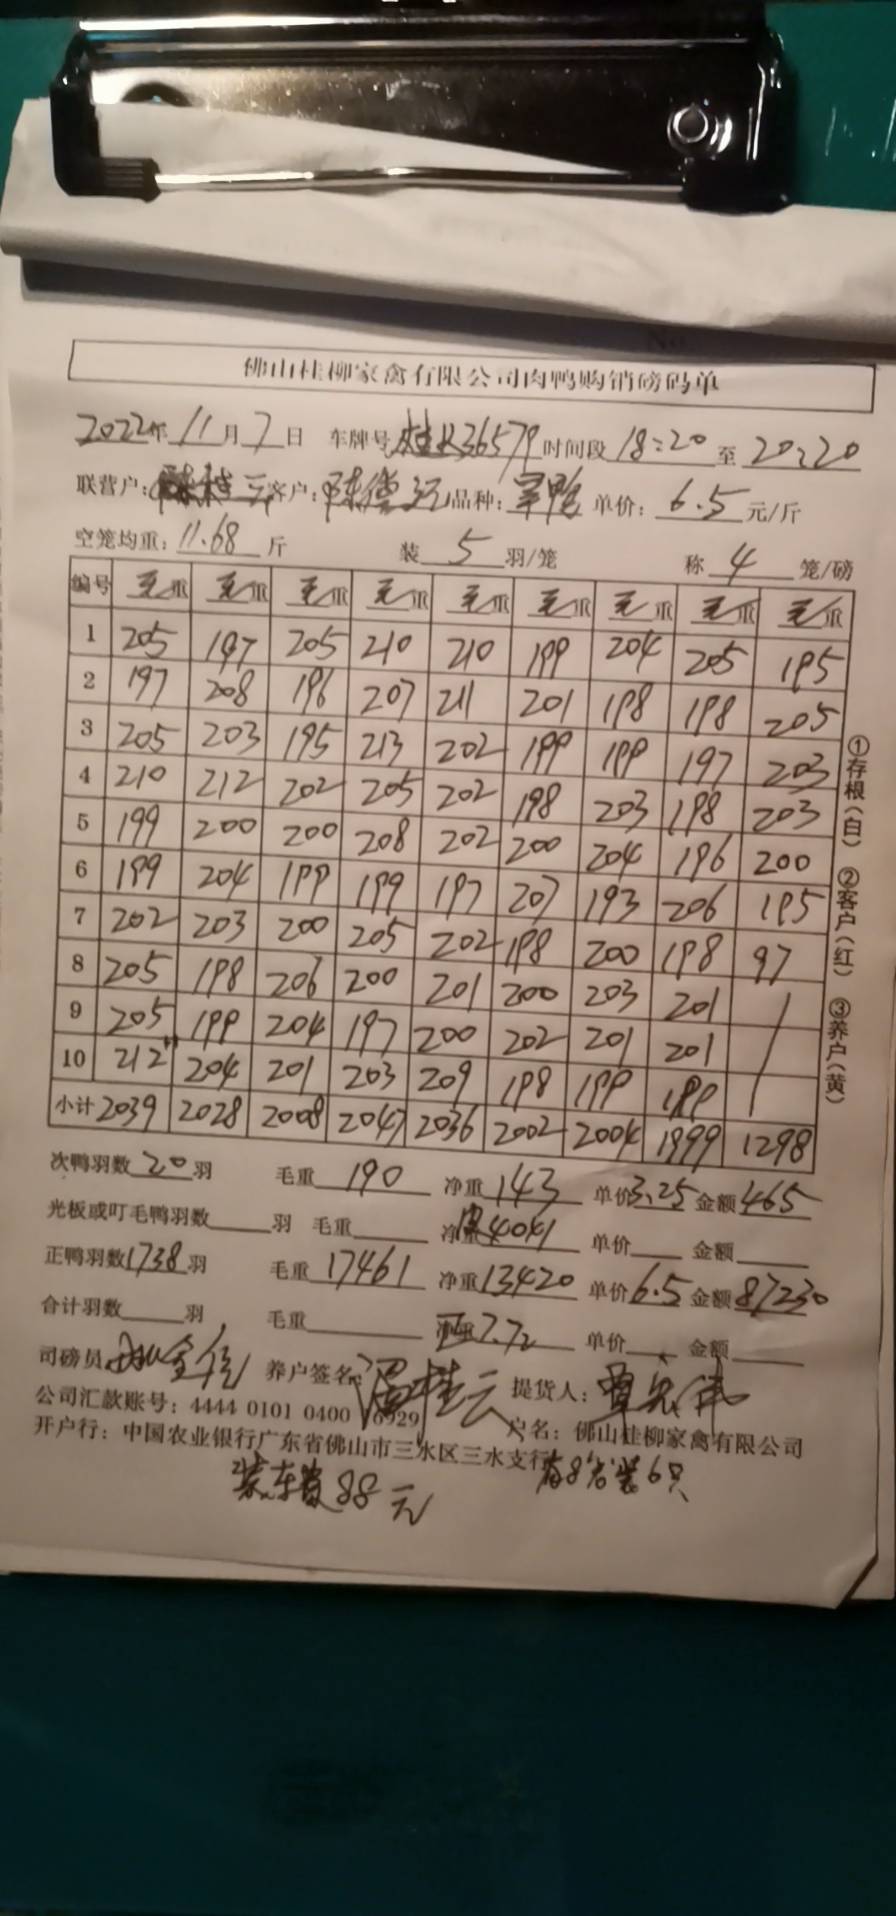 佛山桂柳家禽有限公司肉鸭购销磅码单
2022年 11月 7日 车牌号 桂K36579 时间段 18:20 至 20:20
联营户: 客户: 陈 品种: 单价: 6.5 元/斤
空笼均重: 11.68 斤 装 5 羽/笼 称 4 笼/磅
编号 毛重 毛重 毛重 毛重 毛重 毛重 毛重 毛重 毛重
1 205 197 205 210 210 199 204 205 195
2 197 208 196 207 211 201 198 198 205
3 205 203 195 213 202 199 199 197 203
4 210 212 202 205 202 198 203 198 203
5 199 200 200 208 202 200 204 196 200
6 199 204 199 199 197 207 193 206 195
7 202 203 200 205 202 198 200 198 97
8 205 198 206 200 201 200 203 201
9 205 199 204 197 200 202 201 201
10 212 204 201 203 209 198 199 199
小计 2039 2028 2008 2047 2036 2002 2004 1999 1298
①存根(白) ②客户(红) ③养户(黄)
次鸭羽数 20 羽 毛重 190 净重 143 单价 3.25 金额 465
光板或叮毛鸭羽数 羽 毛重 净重 4041 单价 金额
正鸭羽数 1738 羽 毛重 17461 净重 13420 单价 6.5 金额 87230
合计羽数 羽 毛重 净重 7.72 单价 金额
司磅员: 养户签名: 桂云 提货人: 覃 伟
公司汇款账号: 4444 0101 0400 6929 户名: 佛山桂柳家禽有限公司
开户行: 中国农业银行广东省佛山市三水区三水支行
装车费88元 有8笼装6只